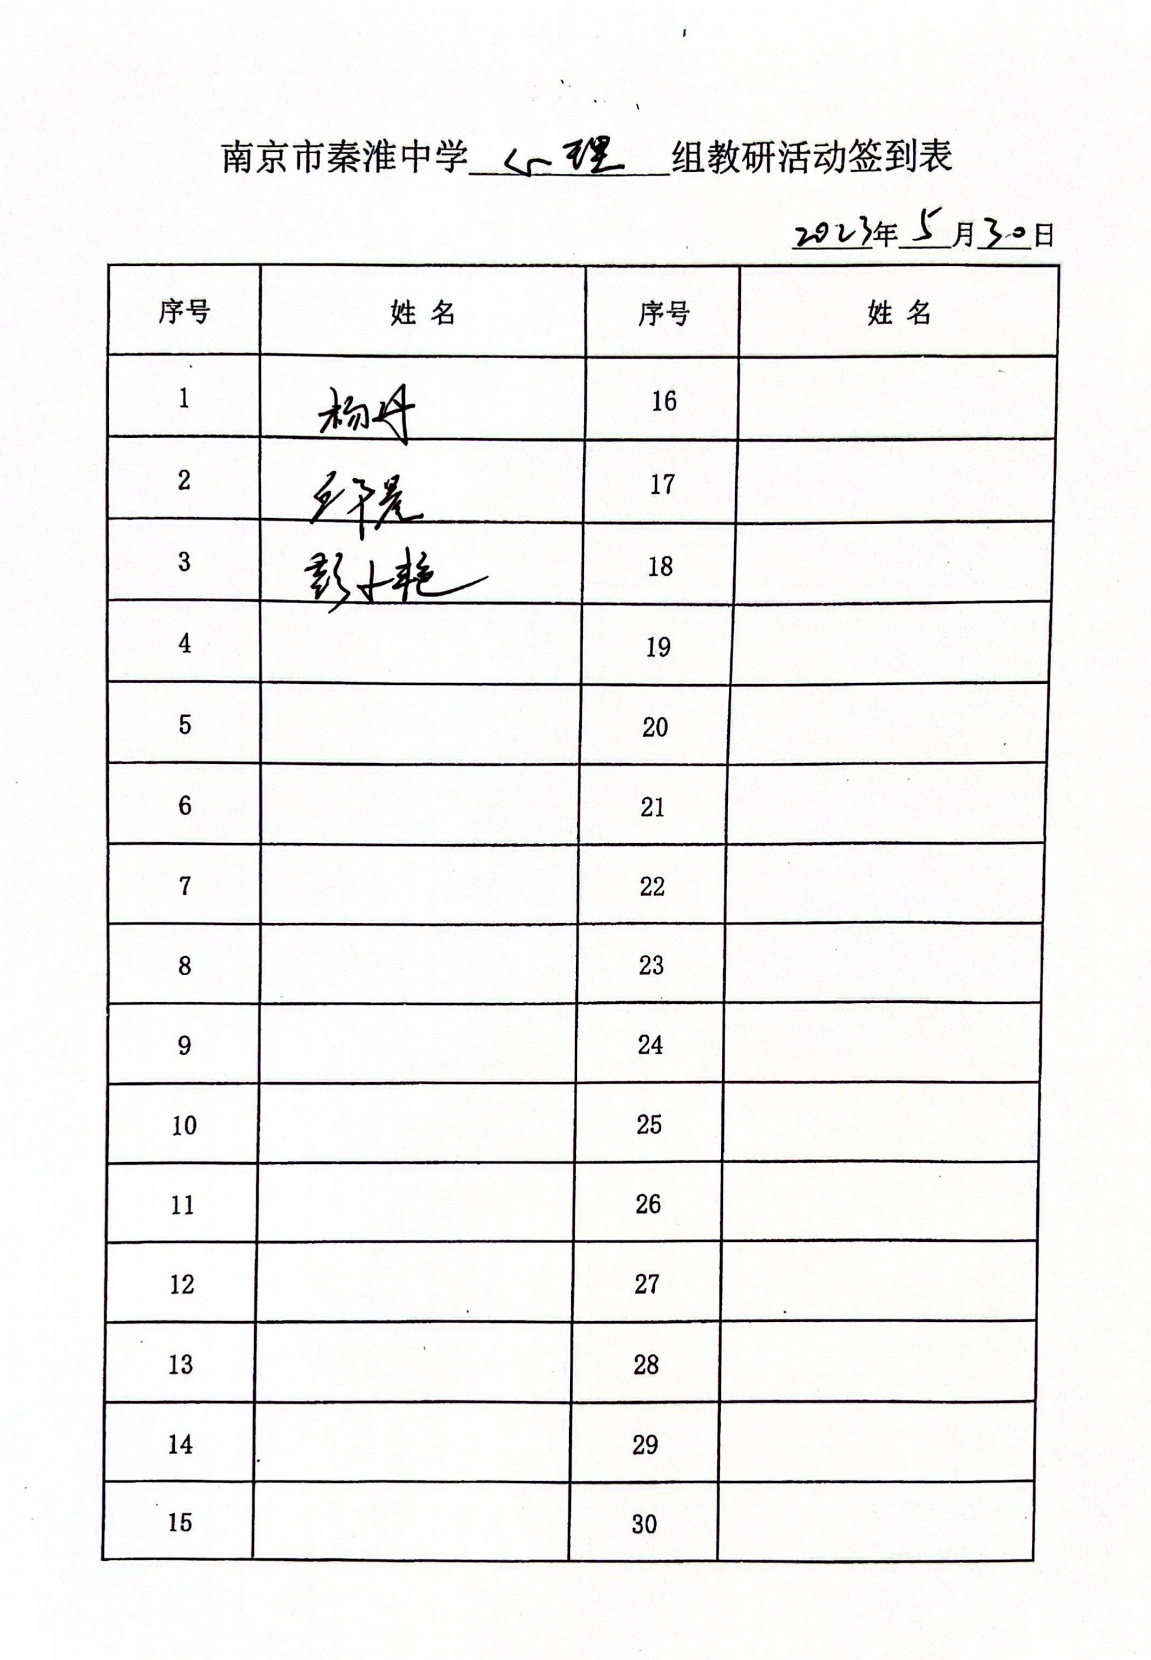 南京市秦淮中学 心理 组教研活动签到表
2023年 5 月 30 日
序号 姓 名 序号 姓 名
1 杨丹 16
2 17
3 彭小艳 18
4 19
5 20
6 21
7 22
8 23
9 24
10 25
11 26
12 27
13 28
14 29
15 30